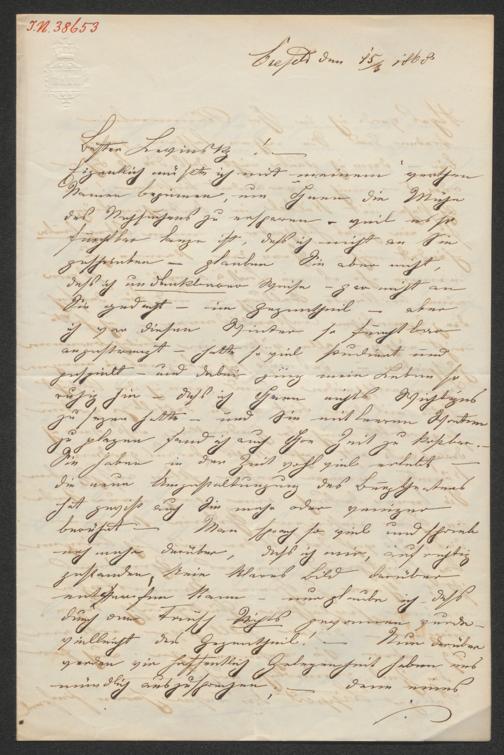 I.N. 38653
Crefeld den 15/3 1868
Bester Lewinsky! —
Eigentlich müßte ich mit meinem werthen
Namen beginnen, um Ihnen die Mühe
des Nachsuchens zu ersparen – weil es so
furchtbar lange ist, daß ich nicht an Sie
geschrieben – glauben Sie aber nicht,
daß ich undankbarer Weise – gar nicht an
Sie gedacht – im Gegentheil – aber
ich war diesen Winter so furchtbar
angestrengt – hatte so viel studiert und
gespielt – und dabei ging mein Leben so
ruhig hin – daß ich Ihnen nichts Wichtiges
zu sagen hatte – und Sie mit leeren Worten
zu plagen fand ich auch Ihre Zeit zu kostbar. –
Sie haben in der Zeit wohl viel erlebt –
die neue Umgestaltung des Burgtheaters
hat gewiß auch Sie mehr oder weniger
berührt – Man sprach so viel und schrieb
noch mehr darüber, daß ich mir, aufrichtig
gestanden, kein klares Bild darüber
entwerfen kann – nur glaube ich daß
durch den Tausch Nichts gewonnen wurde –
vielleicht das Gegentheil! – Nun darüber
werden wir hoffentlich Gelegenheit haben uns
mündlich auszusprechen, – denn eines